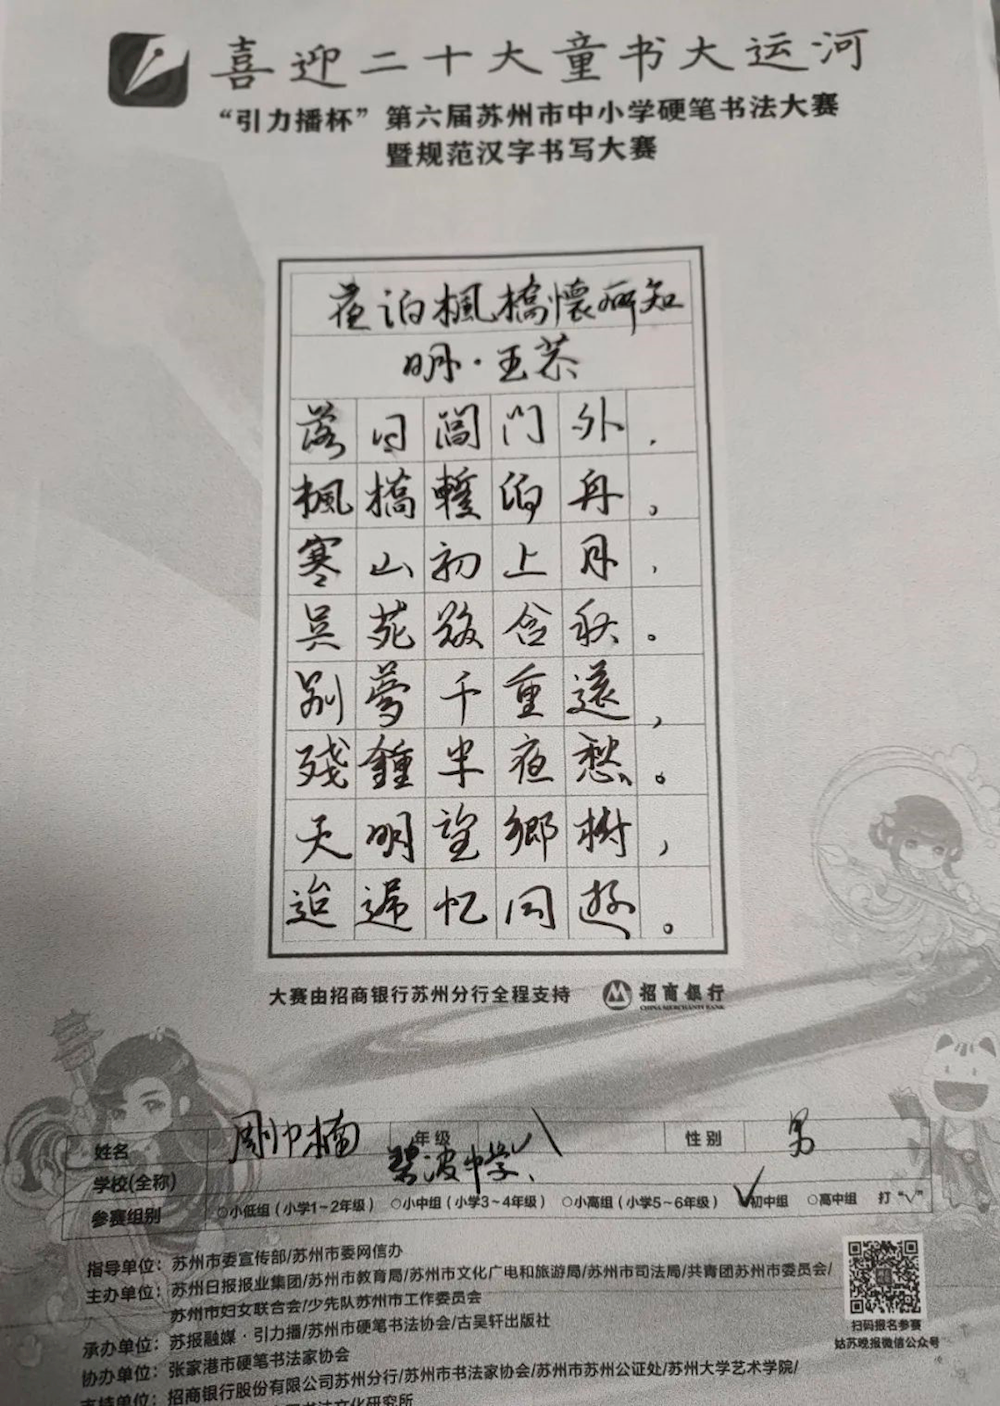 喜迎二十大童书大运河
“引力播杯”第六届苏州市中小学硬笔书法大赛
暨规范汉字书写大赛
夜泊楓橋懷所知
明·王恭
落日閶门外，
楓橋暫泊舟，
寒山初上月，
吴苑欲含秋。
别夢千重遠，
殘鍾半夜愁。
天明望鄉樹，
迨遞忆同遊。
大赛由招商银行苏州分行全程支持 招商银行
CHINA MERCHANTS BANK
姓名 周巾楠 年级 八 性别 男
学校(全称) 碧波中学
参赛组别 ○小低组（小学1~2年级） ○小中组（小学3~4年级） ○小高组（小学5~6年级） √初中组 ○高中组 打“√”
指导单位：苏州市委宣传部/苏州市委网信办
主办单位：苏州日报报业集团/苏州市教育局/苏州市文化广电和旅游局/苏州市司法局/共青团苏州市委员会/
苏州市妇女联合会/少先队苏州市工作委员会
承办单位：苏报融媒·引力播/苏州市硬笔书法协会/古吴轩出版社
协办单位：张家港市硬笔书法家协会
支持单位：招商银行股份有限公司苏州分行/苏州市书法家协会/苏州市苏州公证处/苏州大学艺术学院/
书法文化研究所
扫码报名参赛
姑苏晚报微信公众号